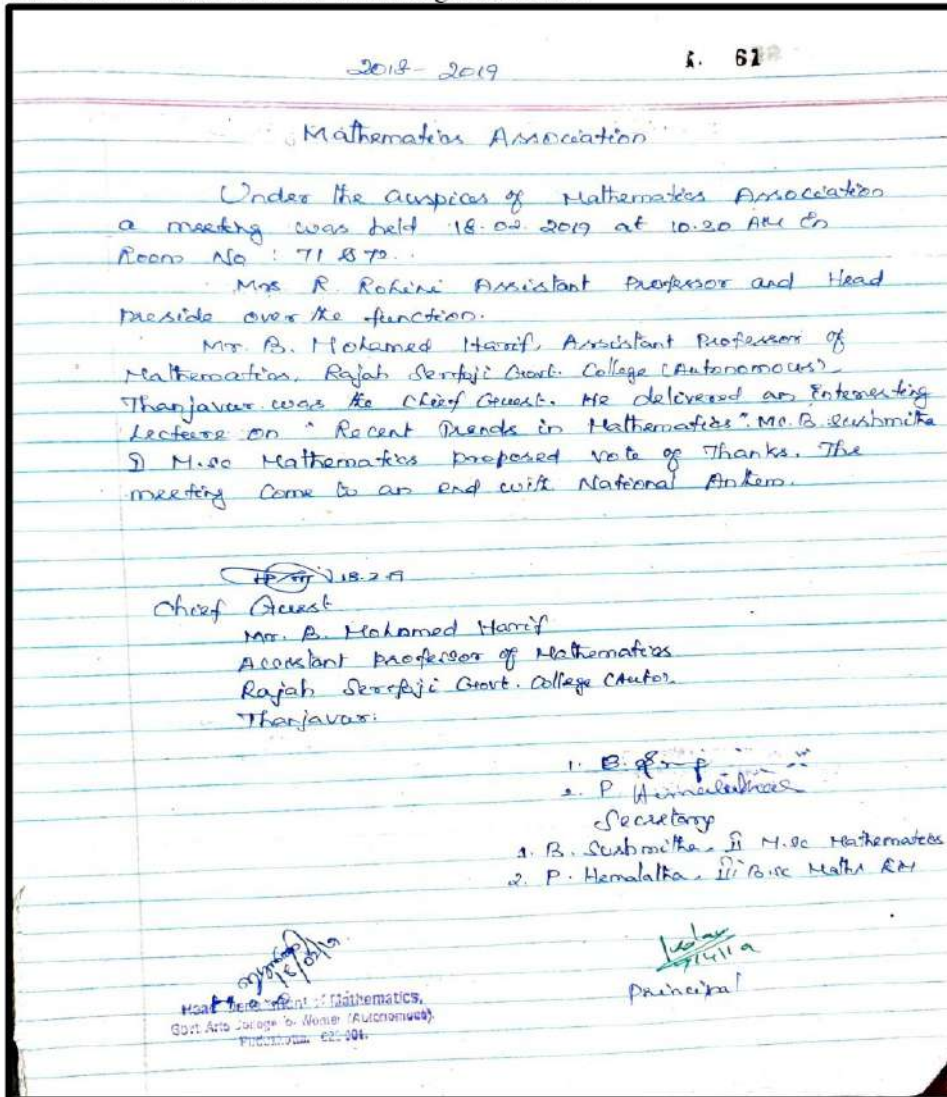 2018 - 2019
61
Mathematics Association
Under the auspices of Mathematics Association
a meeting was held 18.02.2019 at 10.20 AM in
Room No : 71 & 72.
Mrs R. Rohini Assistant Professor and Head
preside over the function.
Mr. B. Mohamed Harif, Assistant Professor of
Mathematics, Rajah Serfoji Govt. College (Autonomous),
Thanjavur was the Chief Guest. He delivered an interesting
Lecture on " Recent Trends in Mathematics". Ms. B. Sushmitha
II M.sc Mathematics proposed vote of Thanks. The
meeting come to an end with National Anthem.
18.2.19
Chief Guest
Mr. B. Mohamed Harrif
Assistant professor of Mathematics
Rajah Serfoji Govt. College (Auto),
Thanjavur.
1. B.
2. P. Hemalatha
Secretary
1. B. Sushmitha, II M.sc Mathematics
2. P. Hemalatha, III B.sc Maths EM
Principal
Head Department of Mathematics,
Govt Arts College for Women (Autonomous)